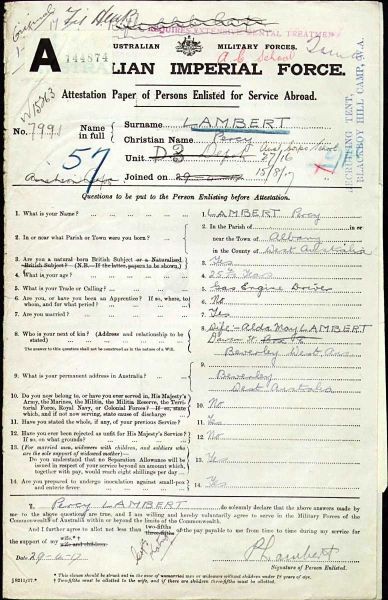 REQUIRES EXTENSIVE DENTAL TREATMENT
AUSTRALIAN MILITARY FORCES.
A 144874
AUSTRALIAN IMPERIAL FORCE.
Attestation Paper of Persons Enlisted for Service Abroad.
No. 7991
Name in full
Surname LAMBERT
Christian Name Percy
Unit D3 Depot
Joined on
27/16
15/8/17
57
RECRUITING TENT,
BLACKBOY HILL CAMP, W.A.
Questions to be put to the Person Enlisting before Attestation.
1. What is your Name?
1. LAMBERT Percy
2. In or near what Parish or Town were you born?
2. In the Parish of
near the Town of Albany
in the County of West Australia
3. Are you a natural born British Subject or a Naturalised British Subject? (N.B.—If the latter, papers to be shown)
3. Yes
4. What is your age?
4. 25 Years
5. What is your Trade or Calling?
5. Gas Engine Driver
6. Are you, or have you been an Apprentice? If so, where, to whom, and for what period?
6. No
7. Are you married?
7. Yes
8. Who is your next of kin? (Address and relationship to be stated)
8. Wife - Alda May LAMBERT
Beverley West Aus.
9. What is your permanent address in Australia?
9. Beverley
West Australia
10. Do you now belong to, or have you ever served in, His Majesty's Army, the Marines, the Militia, the Militia Reserve, the Territorial Force, Royal Navy, or Colonial Forces? If so, state which, and if not now serving, state cause of discharge
10. No
11. Have you stated the whole, if any, of your previous Service?
11. Yes
12. Have you ever been rejected as unfit for His Majesty's Service? If so, on what grounds?
12. No
13. (For married men, widowers with children, and soldiers who are the sole support of widowed mother)—
Do you understand that no Separation Allowance will be issued in respect of your service beyond an amount which, together with pay, would reach eight shillings per day?
13. Yes
14. Are you prepared to undergo inoculation against small-pox and enteric fever?
14. Yes
I, Percy LAMBERT do solemnly declare that the above answers made by
me to the above questions are true, and I am willing and hereby voluntarily agree to serve in the Military Forces of the
Commonwealth of Australia within or beyond the limits of the Commonwealth.
* And I further agree to allot not less than two-fifths three-fifths of the pay payable to me from time to time during my service for
the support of my wife.* wife and children
Date
P Lambert
Signature of Person Enlisted.